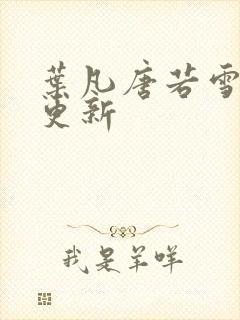 葉凡唐若雪
更新
我是羊咩